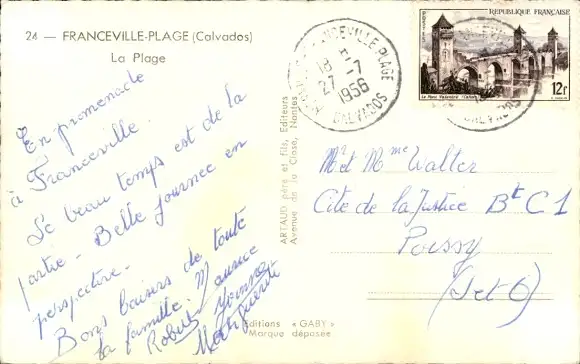 24 — FRANCEVILLE-PLAGE (Calvados)
La Plage
En promenade
à Franceville.
Le beau temps est de la
partie - Belle journée en
perspective.
Bons baisers de toute
la famille. Maurice
Robert Yvonne
Marguerite
ARTAUD père et fils, Editeurs
Avenue de la Close, Nantes
Editions « GABY »
Marque déposée
FRANCEVILLE-PLAGE
18 H
27 -7
1956
CALVADOS
REPUBLIQUE FRANÇAISE
12f
Le Pont Valentré (Cahors)
Mr et Mme Walter
Cité de la Justice Bt C1
Poissy
(S et O)